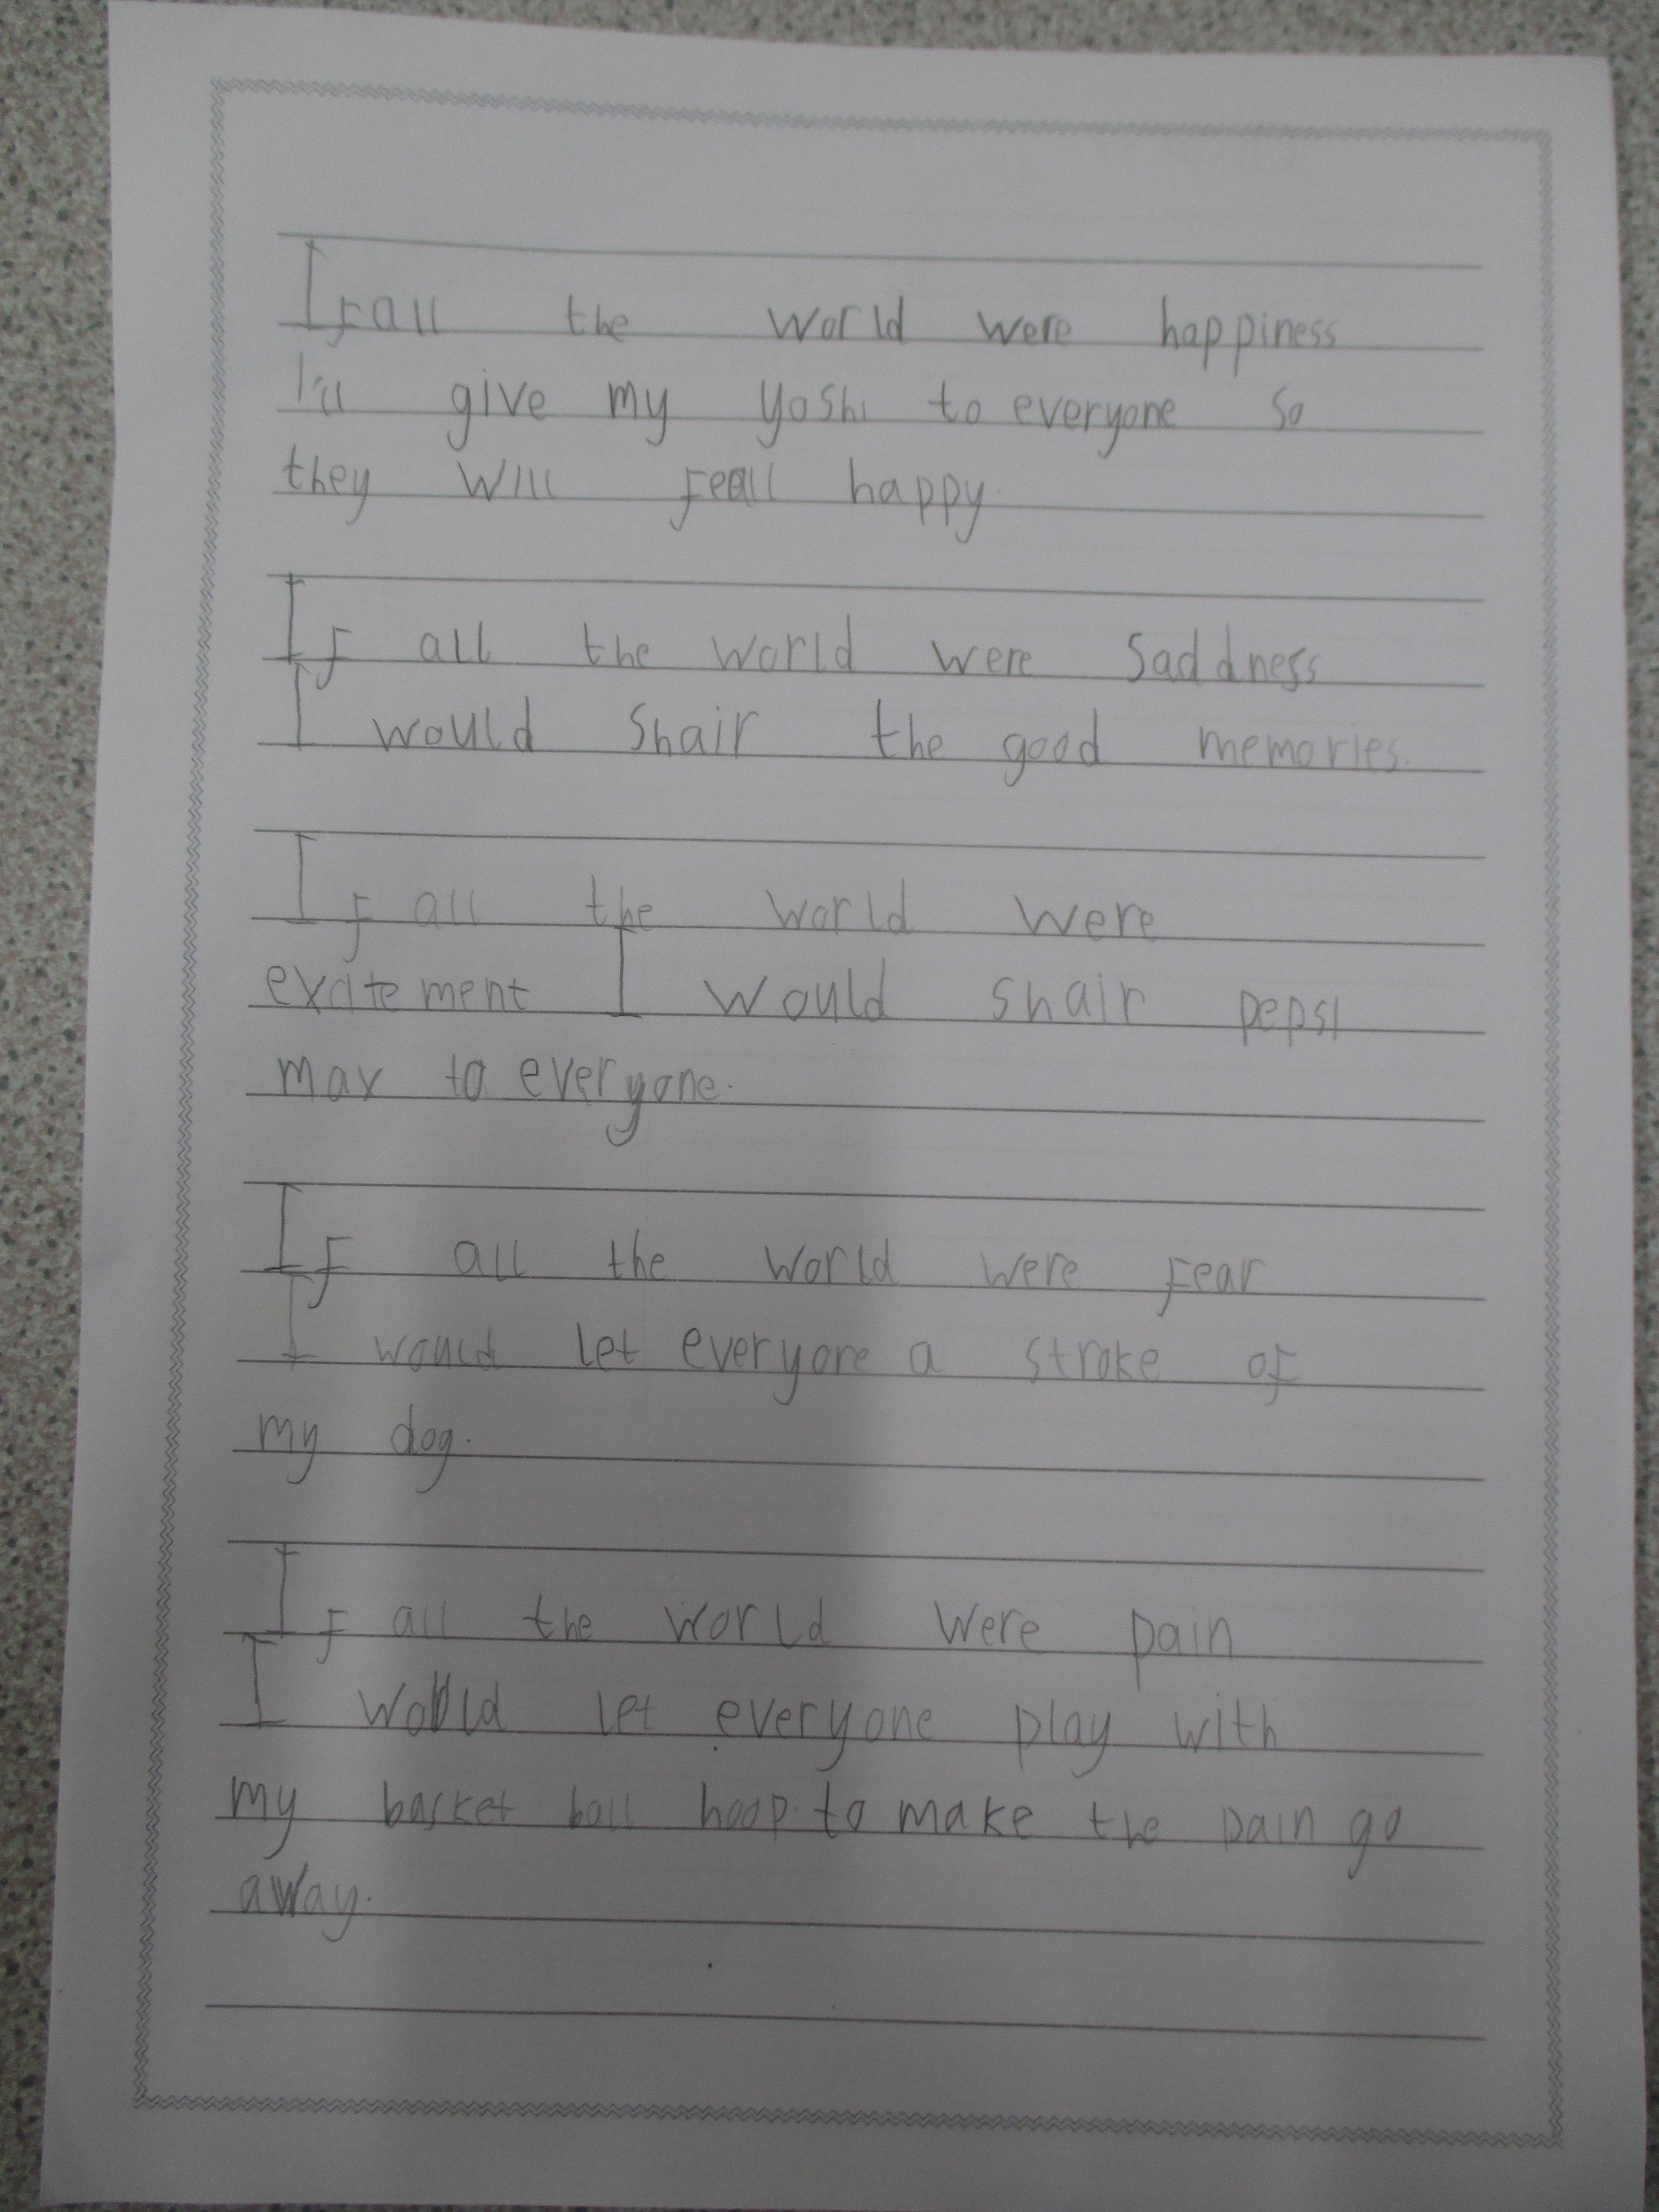 If all the world were happiness
I'll give my yoshi to everyone so
they will feall happy.
If all the world were saddness
I would shair the good memories.
If all the world were
excitement I would shair pepsi
max to everyone.
If all the world were fear
I would let everyone a stroke of
my dog.
If all the world were pain
I would let everyone play with
my basket ball hoop. to make the pain go
away.